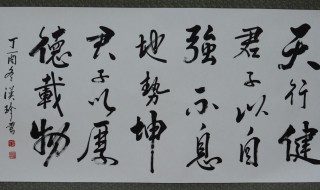 天行健
君子以自
強不息
地勢坤
君子以厚
德載物
丁酉冬珍書